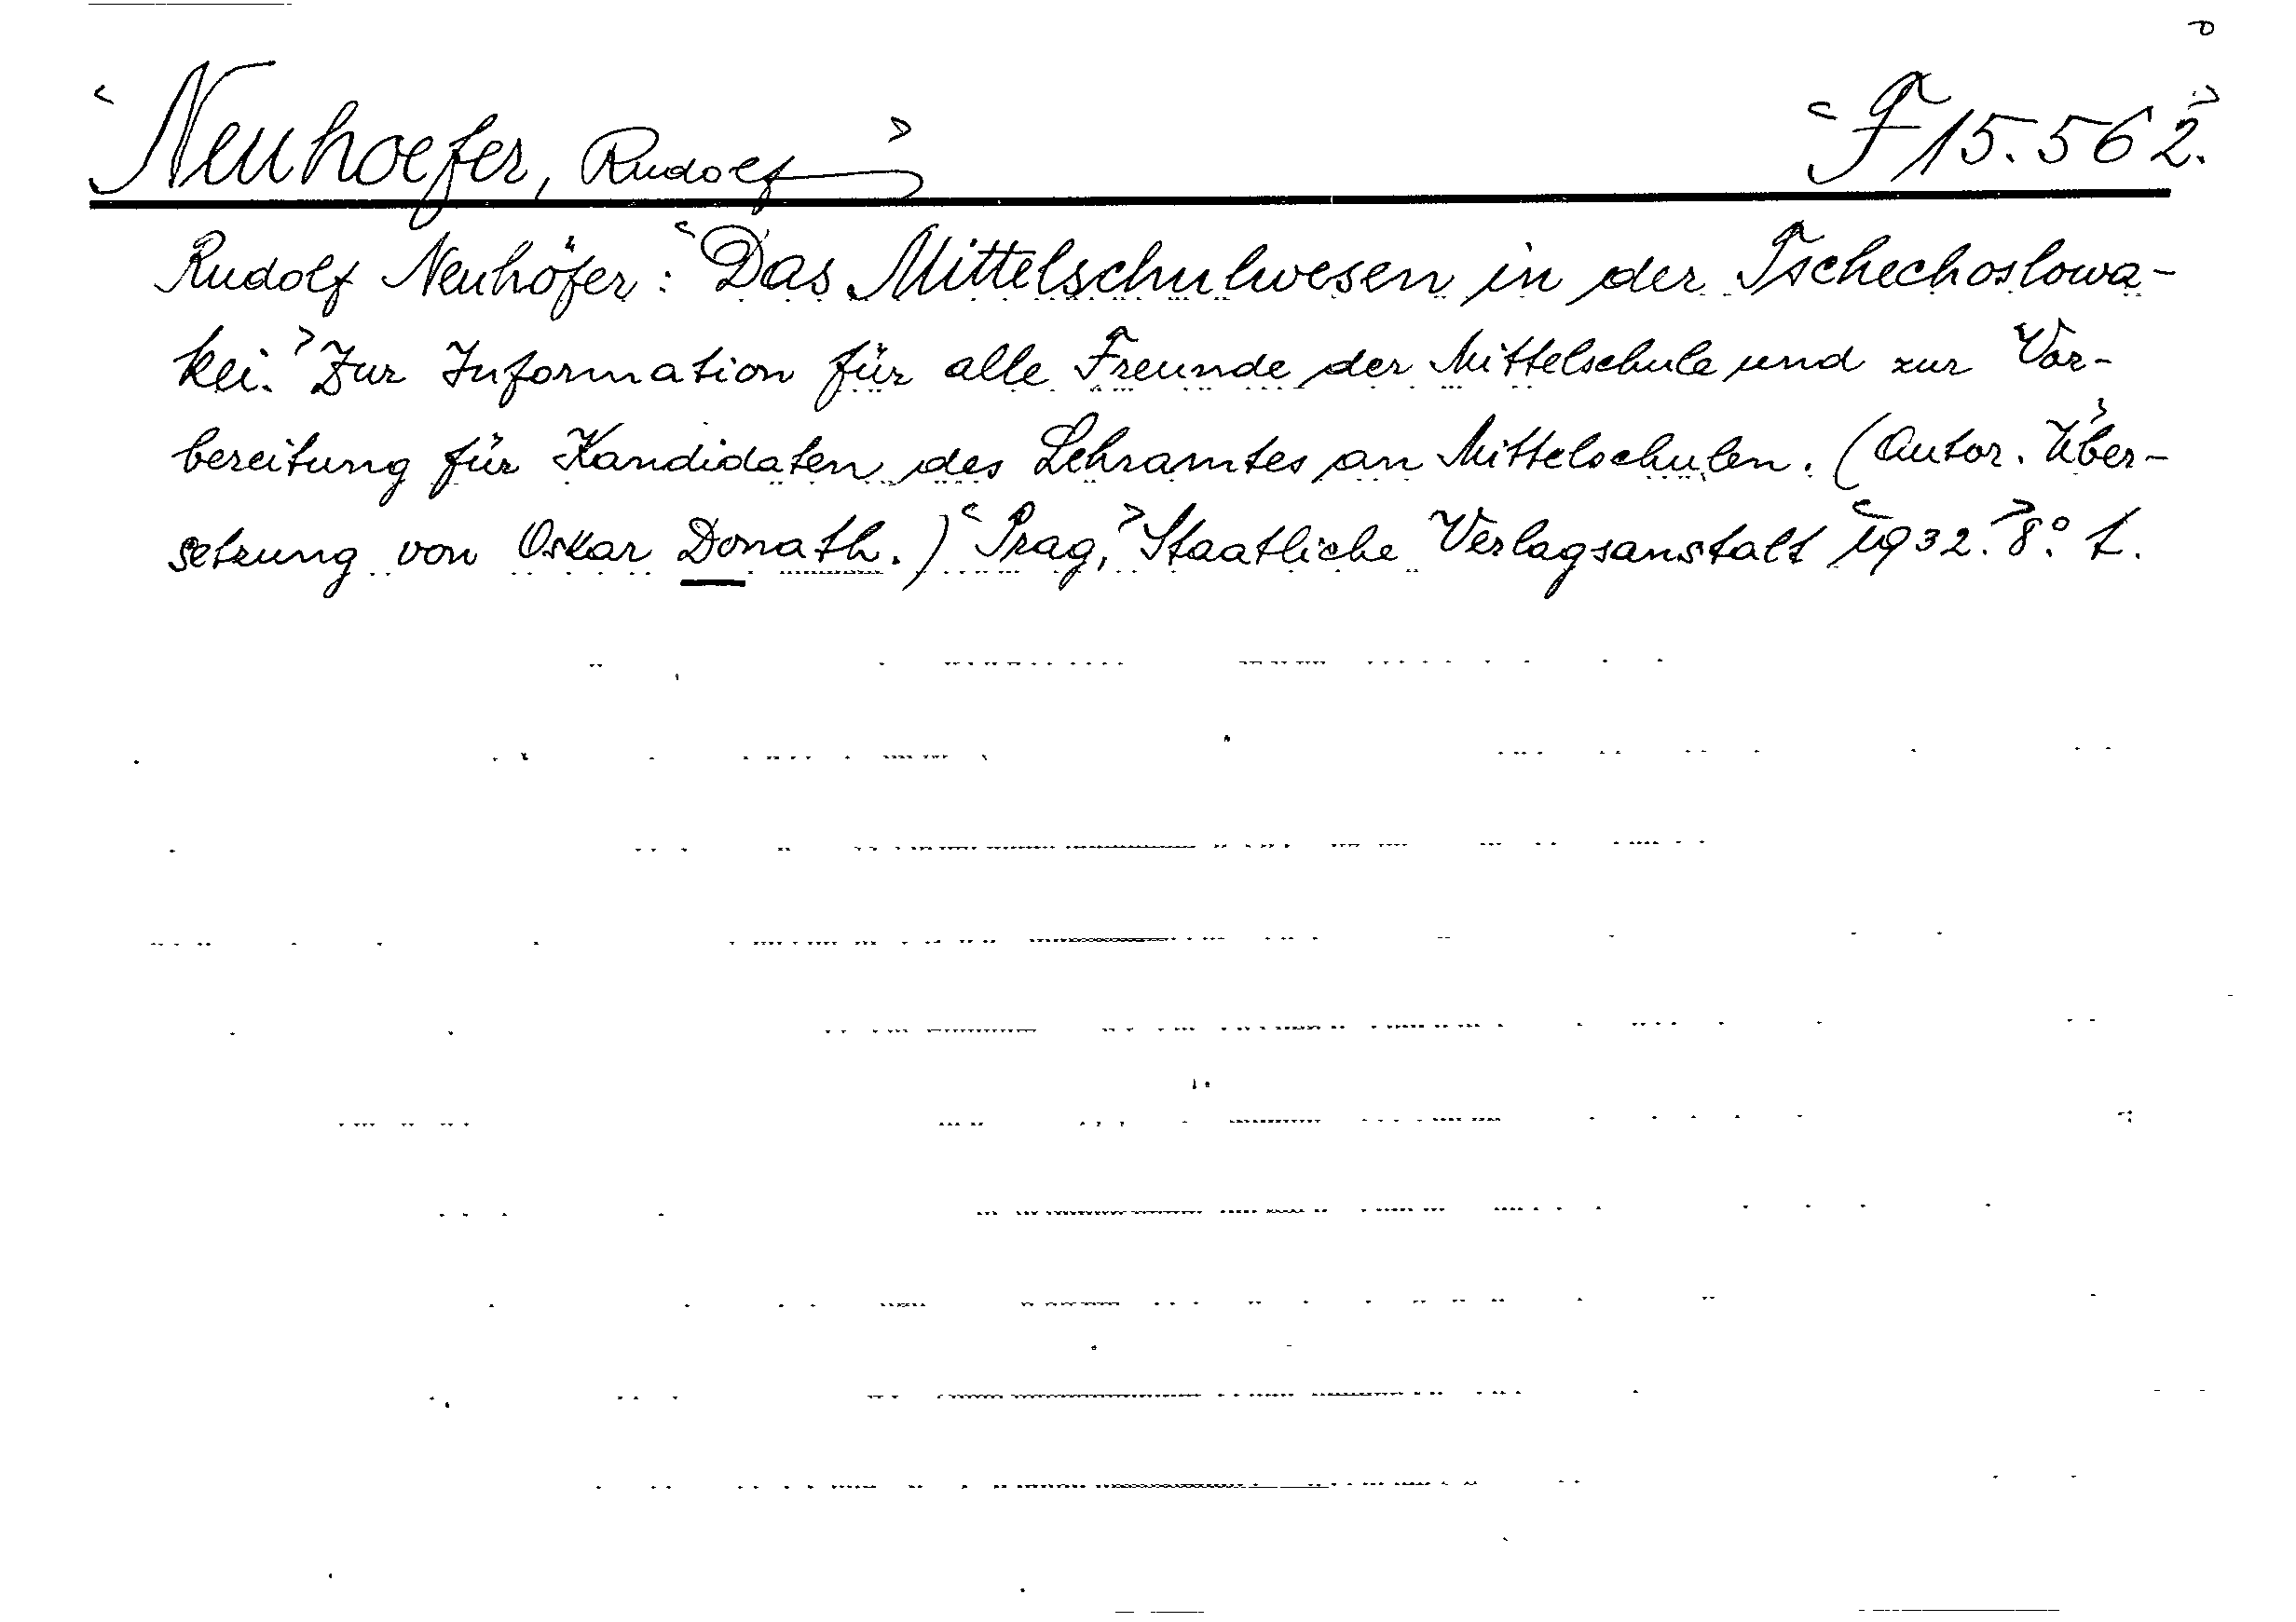 Neuhoefer, Rudolf F 15.562.
Rudolf Neuhöfer: Das Mittelschulwesen in der Tschechoslowa-
kei. Zur Information für alle Freunde der Mittelschule und zur Vor-
bereitung für Kandidaten des Lehramtes an Mittelschulen. (Autor. Über-
setzung von Oskar Donath.) Prag, Staatliche Verlagsanstalt 1932. 8°.